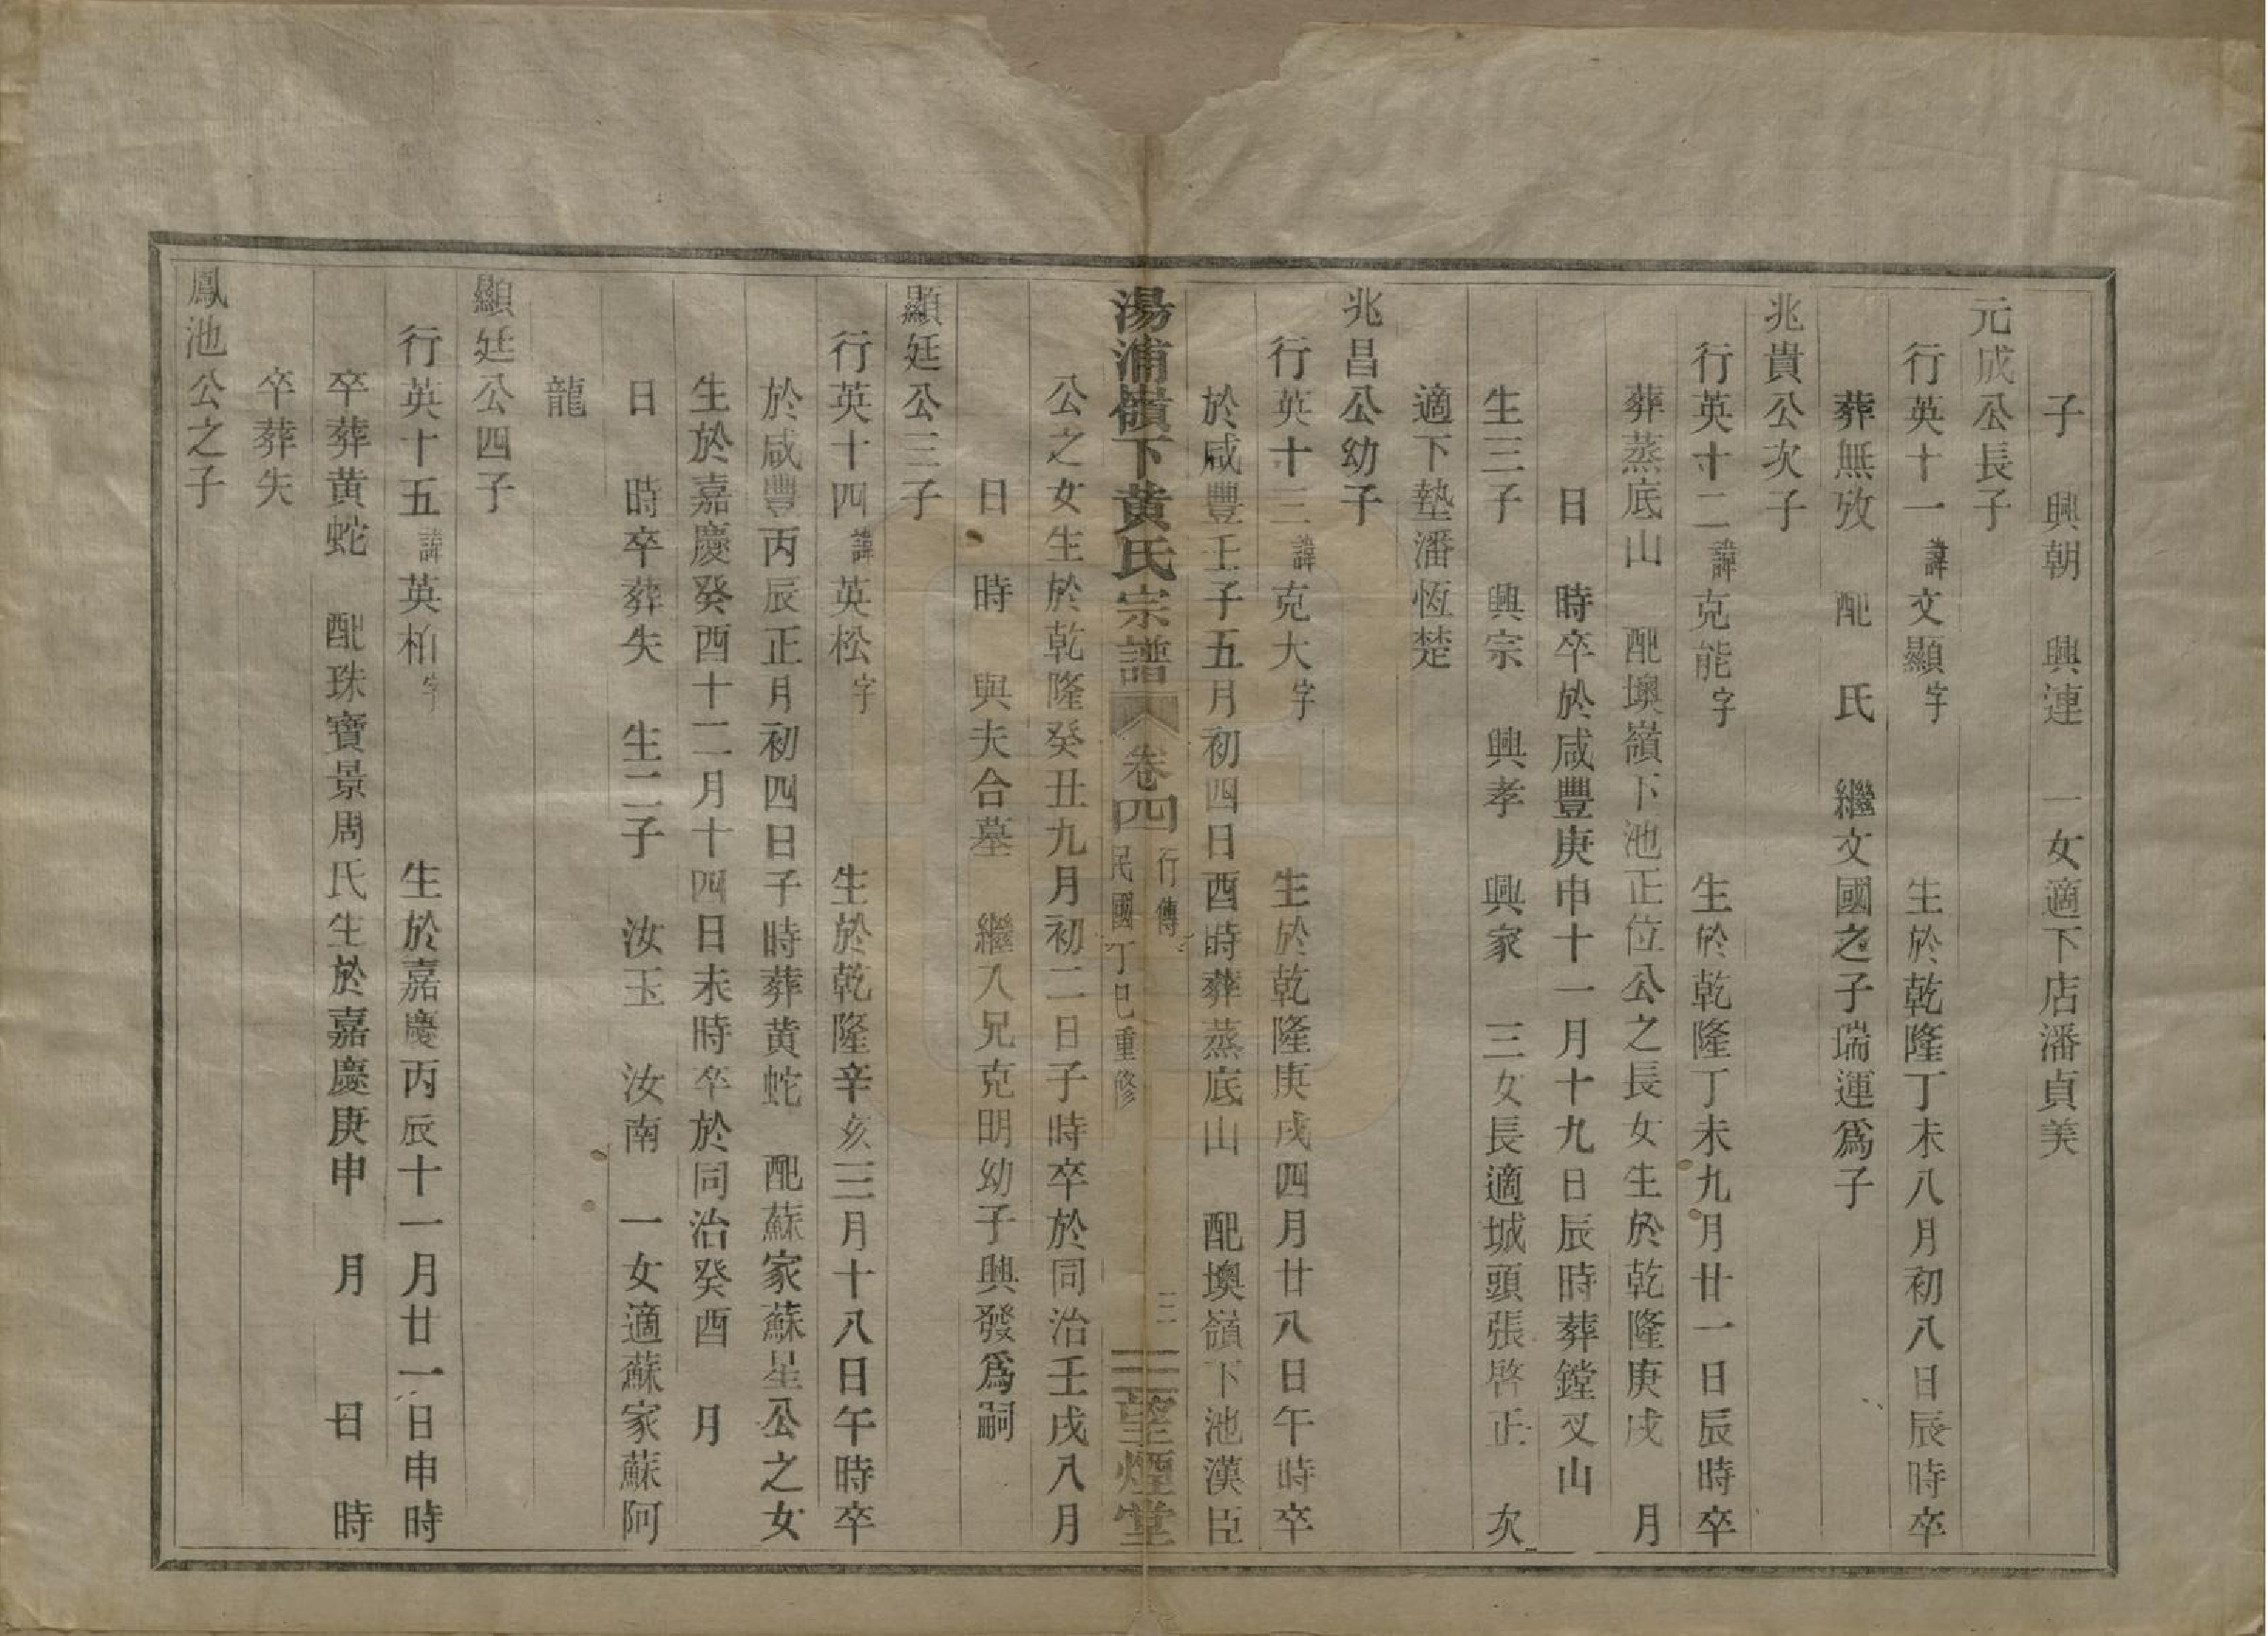 子　興朝　興連　一女適下店潘貞美
元成公長子
行英十一諱文顯字　生於乾隆丁未八月初八日辰時卒
葬無攷　配　氏　繼文國之子瑞運爲子
兆貴公次子
行英十二諱克能字　生於乾隆丁未九月廿一日辰時卒
葬蒸底山　配墺嶺下池正位公之長女生於乾隆庚戌　月
日　時卒於咸豐庚申十一月十九日辰時葬鏜叉山
生三子　興宗　興孝　興家　三女長適城頭張啓正　次
適下墊潘恆楚
兆昌公幼子
行英十三諱克大字　生於乾隆庚戌四月廿八日午時卒
於咸豐壬子五月初四日酉時葬蒸底山　配墺嶺下池漢臣
湯浦嶺下黃氏宗譜　卷四　行傳　民國丁巳重修　三　三望煙堂
公之女生於乾隆癸丑九月初二日子時卒於同治壬戌八月
日　時　與夫合墓　繼入兄克明幼子興發爲嗣
顯廷公三子
行英十四諱英松字　生於乾隆辛亥三月十八日午時卒
於咸豐丙辰正月初四日子時葬黃蛇　配蘇家蘇星公之女
生於嘉慶癸酉十二月十四日未時卒於同治癸酉　月
日　時卒葬失　生二子　汝玉　汝南　一女適蘇家蘇阿
龍
顯廷公四子
行英十五諱英柏字　生於嘉慶丙辰十一月廿一日申時
卒葬黃蛇　配珠寶景周氏生於嘉慶庚申　月　日　時
卒葬失
鳳池公之子